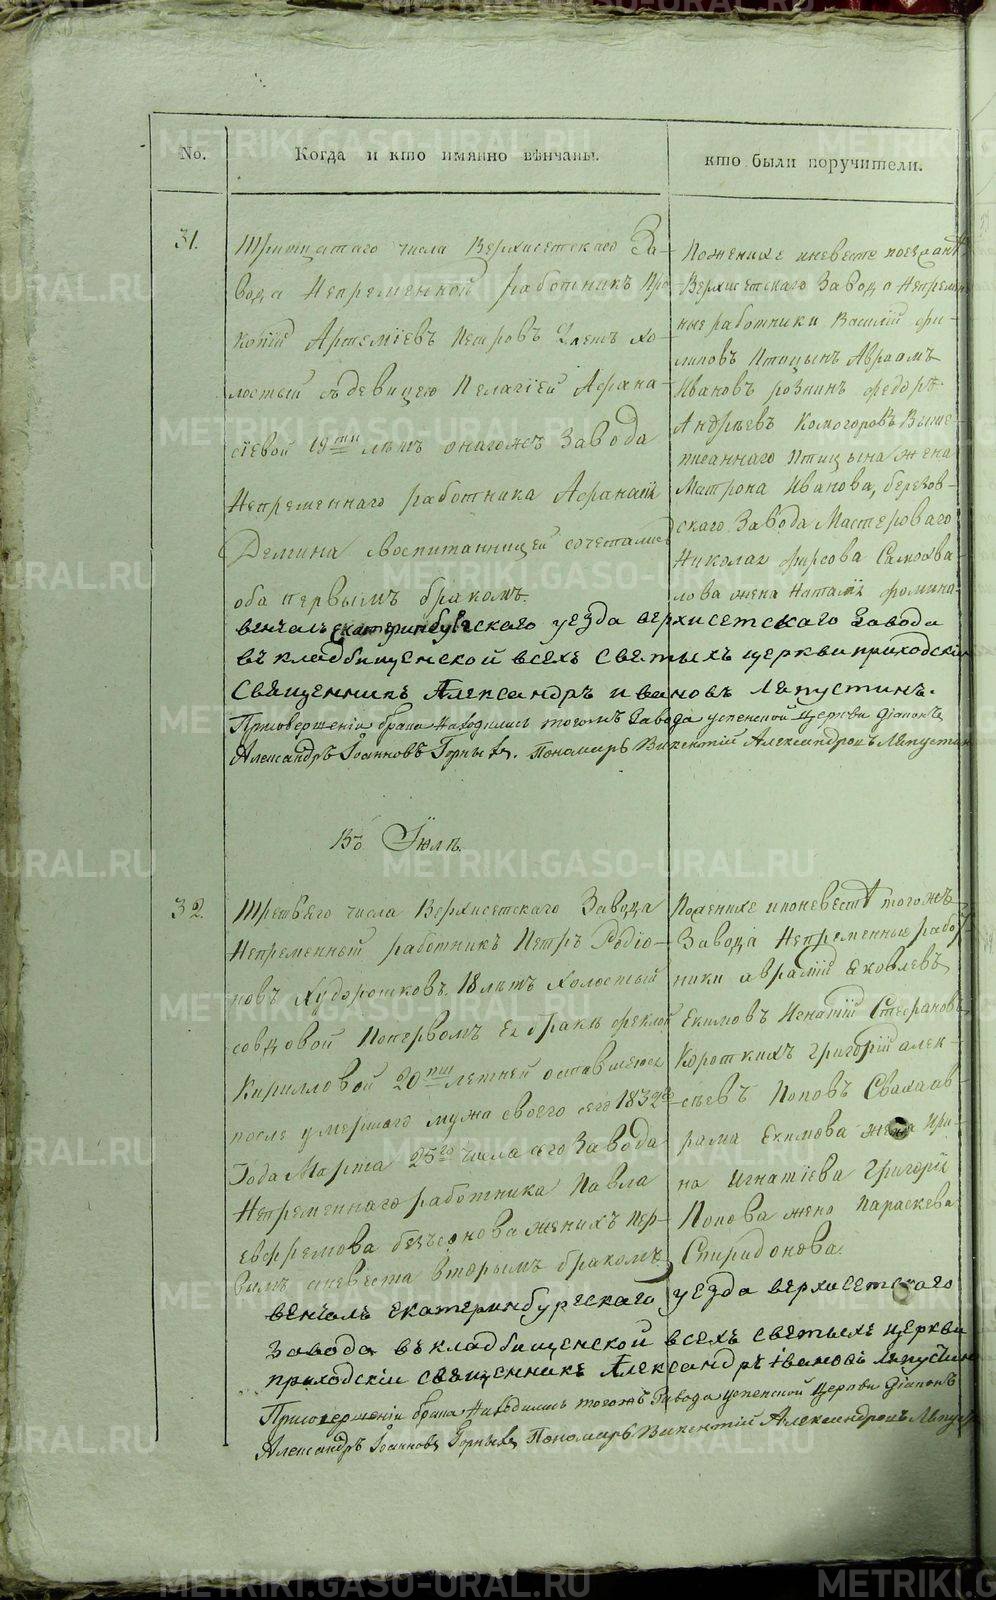 No.
Когда и кто имянно вѣнчаны.
кто были поручители.
31.
Тритцатаго числа Верхисетскаго За-
вода Непременной работникъ Про-
копій Артеміевъ Петровъ летъ хо-
лостый съ девицею Пелагіей Афана-
сіевой 19ти лѣтъ онагожъ Завода
Непременнаго работника Афанасія
Демина воспитанницей сочетались
оба первымъ бракомъ.
Поженихе иневесте поезжанѣ
Верхисетскаго Завода Непремен-
ные работники Василій Фи-
липовъ Птицынъ Авраамъ
Ивановъ рознинъ Федоръ
Андрѣевъ Комогоровъ Выше-
писаннаго Птицына жена
Матрона Иванова, березов-
скаго Завода Мастероваго
Николая Фирсова Самохва-
лова жена Наталія Фомина
венчалъ Екатеринбургскаго уезда верхисетскаго Завода
въ кладбищенской всехъ светыхъ церкви приходскій
Священникъ Александръ ивановъ Ляпустинъ.
Присовершеніи брака Находились тогожъ Завода успенской Церкви діаконъ
Александръ Іоанновъ Горныхъ. Пономарь Викентій Александровъ Ляпустин
Въ Іюлѣ.
32.
Третьяго числа Верхисетскаго Завода
Непременный работникъ Петръ Родіо-
новъ Худорошковъ 18 лѣтъ Холостый
совдовой Попервомъ Ея бракѣ Феклой
Кирилловой 20ти летней оставшеюся
после умершаго мужа своего сего 1832го
Года Марта 25го числа сего Завода
Непременнаго работника Павла
Евфремова безсонова женихъ пер-
вымъ аневеста вторымъ бракомъ
Поженихе ипоневестѣ тогожъ
Завода Непременные работ-
ники авраамій Яковлевъ
Екимовъ Игнатій Стефановъ
Короткихъ Григорій алек-
сѣевъ Поповъ Свахаав-
рама Екимова жена Ири-
на Игнатіева Григорія
Попова жена Параскева
Спиридонова.
венчалъ екатеринбургскаго уезда верхисетскаго
завода въ кладбищенской всехъ светыхъ церкви
приходскій священникъ Александръ ивановъ Ляпустин
Присовершеніи брака Находились тогожъ Завода успенской Церкви діаконъ
Александръ Іоанновъ Горныхъ Пономарь Викентій Александровъ Ляпуст